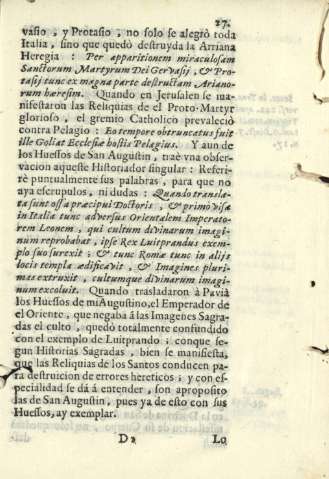 27.
vasio, y Protasio, no solo se alegrò toda
Italia, sino que quedò destruyda la Arriana
Heregia : Per apparitionem miraculosam
Sanctorum Martyrum Dei Gervasij, & Pro-
tasij tunc ex magna parte destructam Ariano-
rum hæresim. Quando en Jerusalen se ma-
nifestarou las Reliquias de el Proto-Martyr
glorioso, el gremio Catholico prevaleciò
contra Pelagio : Eo tempore obtruncatus fuit
ille Goliat Ecclesiæ hostis Pelagius. Y aun de
los Huessos de San Augustin, traè vna obser-
vacion aqueste Historiador singular : Referi-
rè puntualmente sus palabras, para que no
aya escrupulos, ni dudas : Quando transla-
ta sunt ossa præcipui Doctoris, & primò visa
in Italia tunc adversus Orientalem Imperato-
rem Leonem, qui cultum divinarum imagi-
num reprobabat, ipse Rex Luitprandus exem-
plo suo surexit ; & tunc Romæ tunc in alijs
locis templa ædificavit, & Imagines pluri-
mas extruxit, cultumque divinarum Imagi-
num excoluit. Quando trasladaron à Pavia
los Huessos de mi Augustino, el Emperador de
el Oriente, que negaba à las Imagenes Sagra-
das el culto, quedò totalmente confundido
con el exemplo de Luitprando ; conque se-
gun Historias Sagradas, bien se manifiesta,
que las Reliquias de los Santos conducen pa-
ra destruicion de errores hereticos ; y con es-
pecialidad se dà á entender, son aproposito
las de San Augustin, pues ya de esto con sus
Huessos, ay exemplar.
D2 Lo